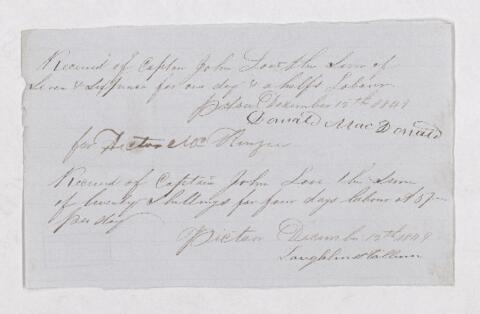 Received of Captn John Lov the Sum of
Seven & Sixpence for one day & a half's Labour
Pictou December 12th 1849
Donald MacDonald
for Hector Mc
Received of Captain John Love the Sum
of twenty Shillings for four days labour at 5/
per day
Pictou December 12th 1849
Laughlin